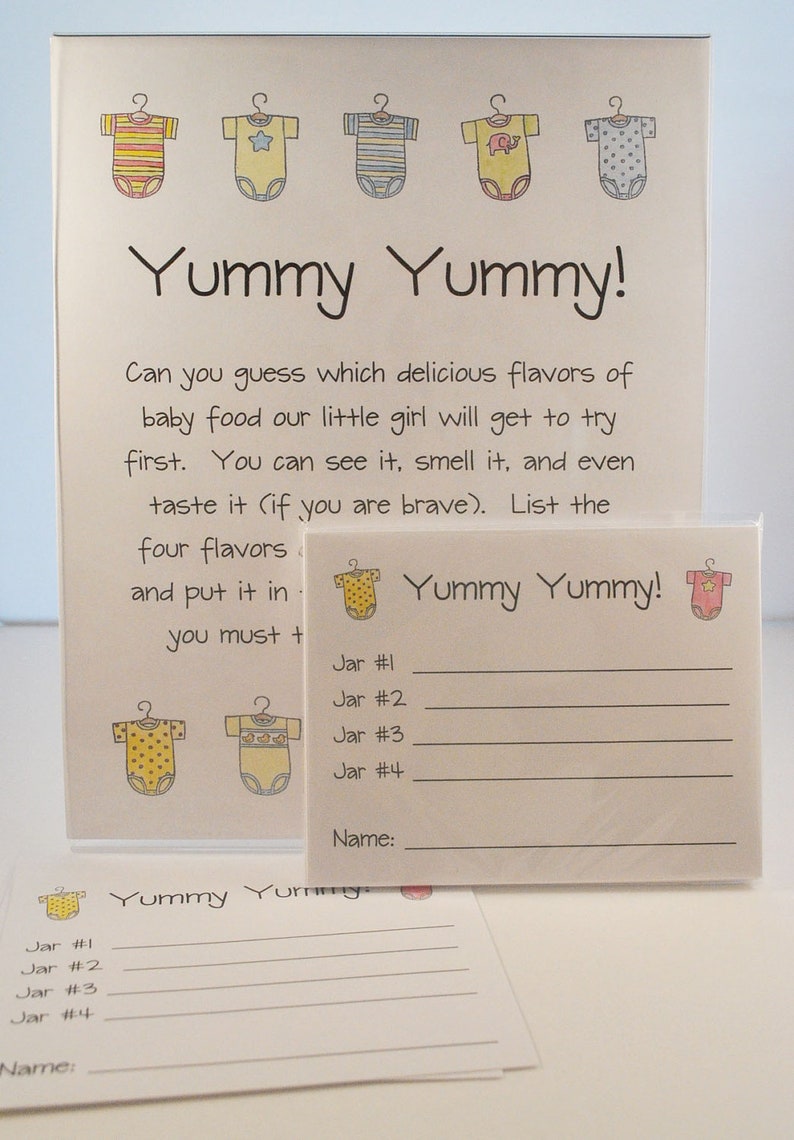 Yummy Yummy!
Can you guess which delicious flavors of
baby food our little girl will get to try
first. You can see it, smell it, and even
taste it (if you are brave). List the
four flavors
and put it in
you must
Yummy Yummy!
Jar #1
Jar #2
Jar #3
Jar #4
Name:
Yummy Yummy!
Jar #1
Jar #2
Jar #3
Jar #4
Name: